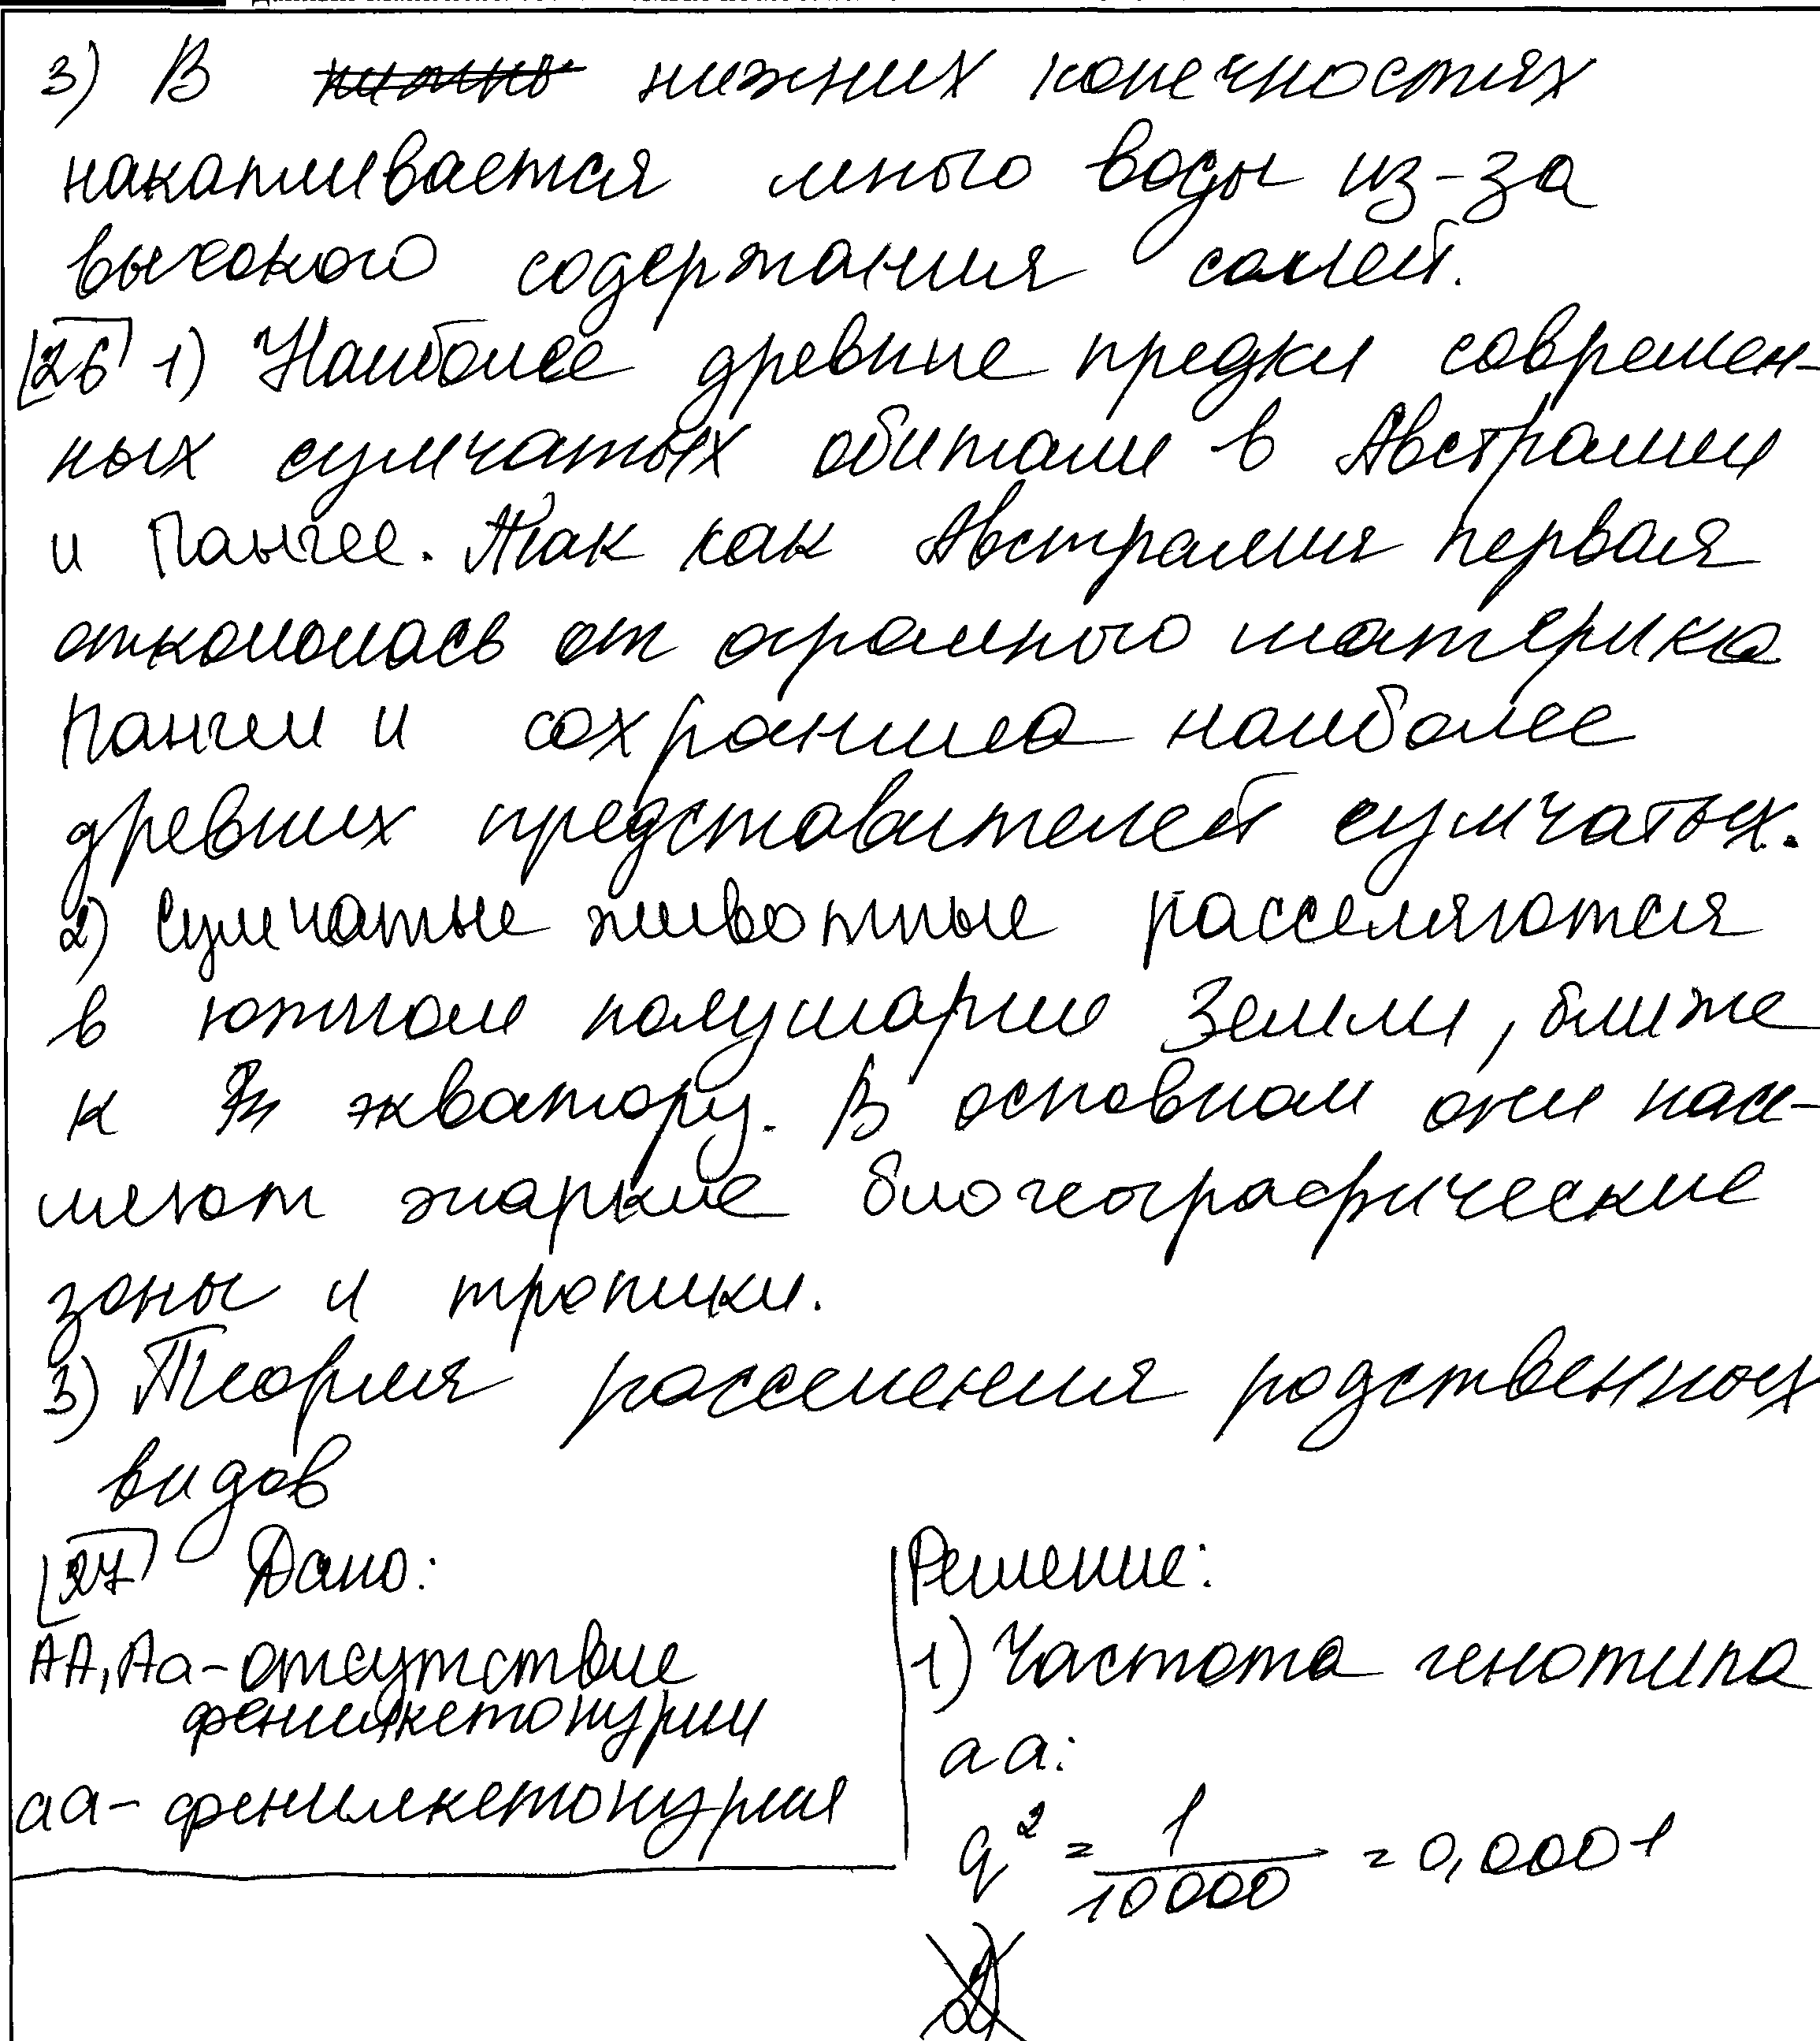 3) В нижних конечностях
накапливается много воды из-за
высокого содержания солей.
26 1) Наиболее древние предки современ-
ных сумчатых обитали в Австралии
и Пангее. Так как Австралия первая
откололась от огромного материка
Пангеи и сохранила наиболее
древних представителей сумчатых.
2) Сумчатые животные расселяются
в южном полушарии Земли, ближе
к экватору. В основном они насе-
ляют жаркие биогеографические
зоны и тропики.
3) Теория расселения родственных
видов
27 Дано:
АА, Аа - отсутствие
фенилкетонурии
аа - фенилкетонурия
Решение:
1) Частота генотипа
аа:
q² = 1/10000 = 0,0001